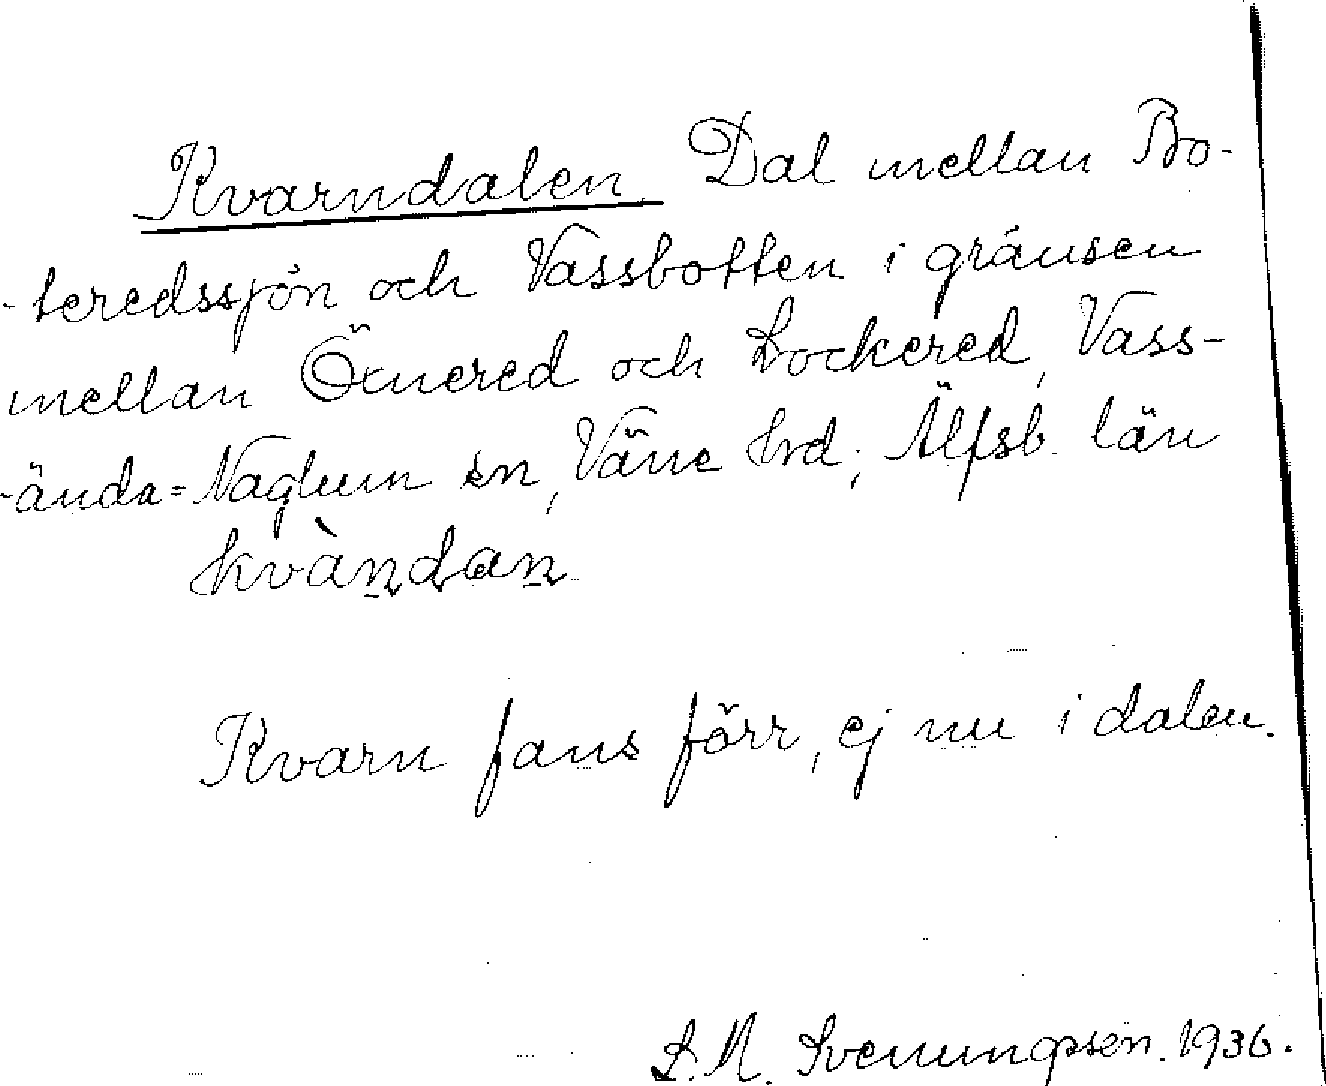 Kvarndalen Dal mellan Bo-
-teredssjön och Vassbotten i gränsen
mellan Öxnered och Lockered, Vass-
-ända=Naglum sn, Väne hrd; Älfsb. län
kvàndan
Kvarn fans förr, ej nu i dalen.
S. M. Svenungsson. 1936.